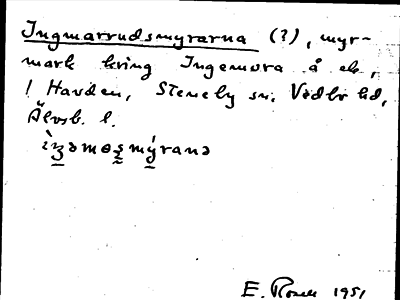 Ingmarrudsmyrarna (?), myr-
mark kring Ingemura å ek,
/ Havden, Steneby sn. Vedbo hd,
Älvsb. l.
ìʒəmosmýranə
E. 1951